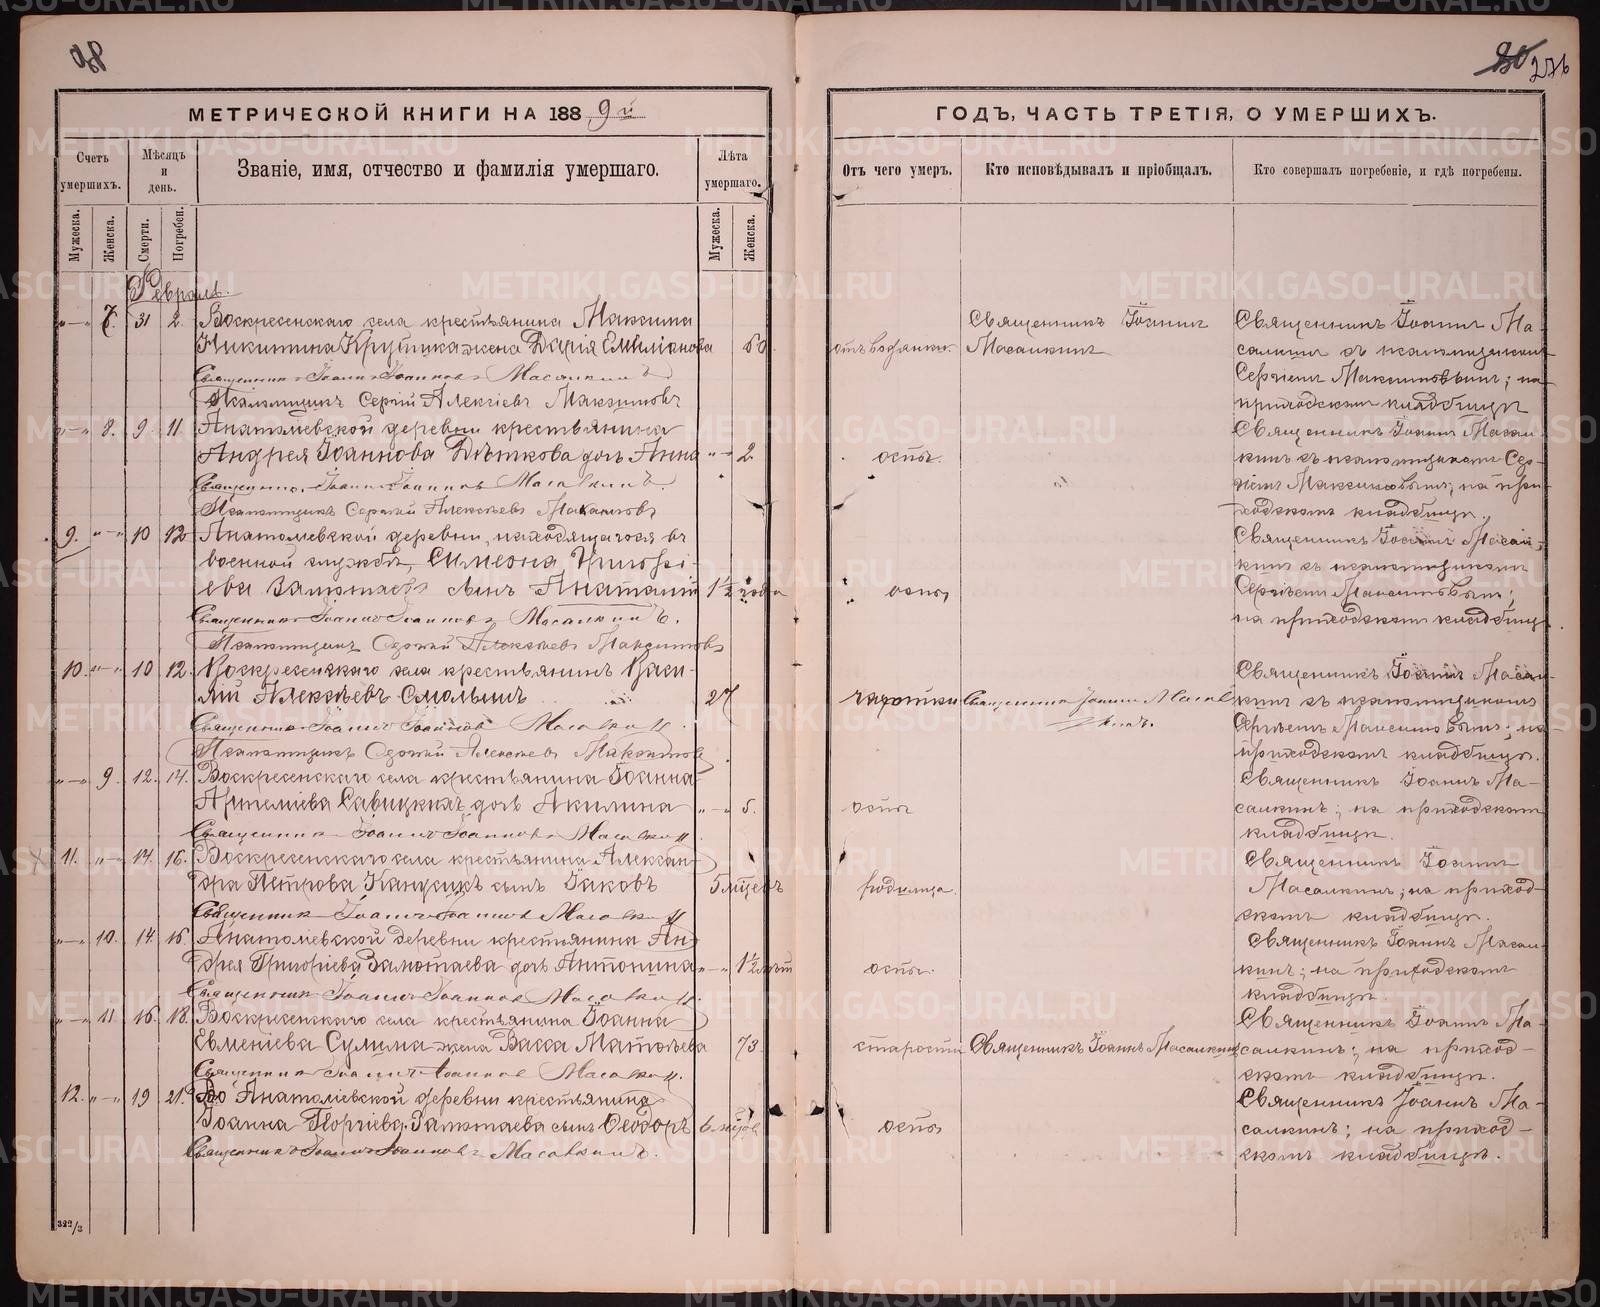 276
МЕТРИЧЕСКОЙ КНИГИ НА 1889й
ГОДЪ, ЧАСТЬ ТРЕТІЯ, О УМЕРШИХЪ.
Счетъ умершихъ.
Мужеска.
Женска.
Мѣсяцъ и день.
Смерти.
Погребен.
Званіе, имя, отчество и фамилія умершаго.
Лѣта умершаго.
Мужеска.
Женска.
Отъ чего умеръ.
Кто исповѣдывалъ и пріобщалъ.
Кто совершалъ погребеніе, и гдѣ погребены.
Февраль.
"—" 7. 31 2. Воскресенскаго села крестьянина Максима
Никитина жена Дарія Емиліанова
Священникъ Іоаннъ Іоанновъ Масалкинъ
Псаломщикъ Сергій Алексіевъ Максимовъ
Священникъ Іоаннъ
Масалкинъ
Священникъ Іоаннъ Ма-
салкинъ съ псаломщикомъ
Сергіемъ Максимовымъ; на
приходскомъ кладбищѣ
"—" 8. 9 11 Анатоліевской деревни крестьянина
Андрея Іоаннова дочь Анна "—" 2.
Священникъ Іоаннъ Іоанновъ Масалкинъ.
Псаломщикъ Сергій Алексѣевъ Максимовъ
оспы.
Священникъ Іоаннъ Масал-
кинъ съ псаломщикомъ Сер-
гіемъ Максимовымъ; на при-
ходскомъ кладбищѣ.
9. "—" 10 12 Анатоліевской деревни, находящагося въ
военной службѣ, Симеона Григорі-
ева сынъ Анатолій 1½ года
Священникъ Іоаннъ Іоанновъ Масалкинъ.
Псаломщикъ Сергій Алексѣевъ Максимовъ
оспы
Священникъ Іоаннъ Масал-
кинъ съ псаломщикомъ
Сергіемъ Максимовымъ;
на приходскомъ кладбищѣ.
10. "—" 10 12. Воскресенскаго села крестьянинъ Васи-
лій Алексѣевъ 27
Священникъ Іоаннъ Іоанновъ Масалкинъ.
Псаломщикъ Сергій Алексѣевъ Максимовъ
чахотки
Священникъ Іоаннъ Масал-
кинъ.
Священникъ Іоаннъ Масал-
кинъ съ псаломщикомъ
Сергіемъ Максимовымъ; на
приходскомъ кладбищѣ.
"—" 9. 12. 14. Воскресенскаго села крестьянина Іоанна
Артеміева дочь Акилина "—" 5.
Священникъ Іоаннъ Іоанновъ Масалкинъ.
оспы
Священникъ Іоаннъ Ма-
салкинъ; на приходскомъ
кладбищѣ.
11. "—" 14. 16. Воскресенскаго села крестьянина Алексан-
дра Петрова сынъ Іаковъ 5 мцевъ
Священникъ Іоаннъ Іоанновъ Масалкинъ
родимца.
Священникъ Іоаннъ
Масалкинъ; на приход-
скомъ кладбищѣ.
"—" 10. 14. 16. Анатоліевской деревни крестьянина Ан-
дрея Григоріева Замотаева дочь Антонина "—" 1½ лѣт
Священникъ Іоаннъ Іоанновъ Масалкинъ.
оспы.
Священникъ Іоаннъ Масал-
кинъ; на приходскомъ
кладбищѣ.
"—" 11 16. 18. Воскресенскаго села крестьянина Іоанна
Евменіева Сулима жена Васса Матвѣева 73.
Священникъ Іоаннъ Іоанновъ Масалкинъ.
старости
Священникъ Іоаннъ Масалкинъ
Священникъ Іоаннъ Ма-
салкинъ; на приход-
скомъ кладбищѣ.
12. "—" 19 21. Анатоліевской деревни крестьянина
Іоанна Замотаева сынъ Ѳеодоръ 6 мцев
Священникъ Іоаннъ Іоанновъ Масалкинъ.
оспы
Священникъ Іоаннъ Ма-
салкинъ; на приход-
скомъ кладбищѣ.
322/3
METRIKI.GASO-URAL.RU